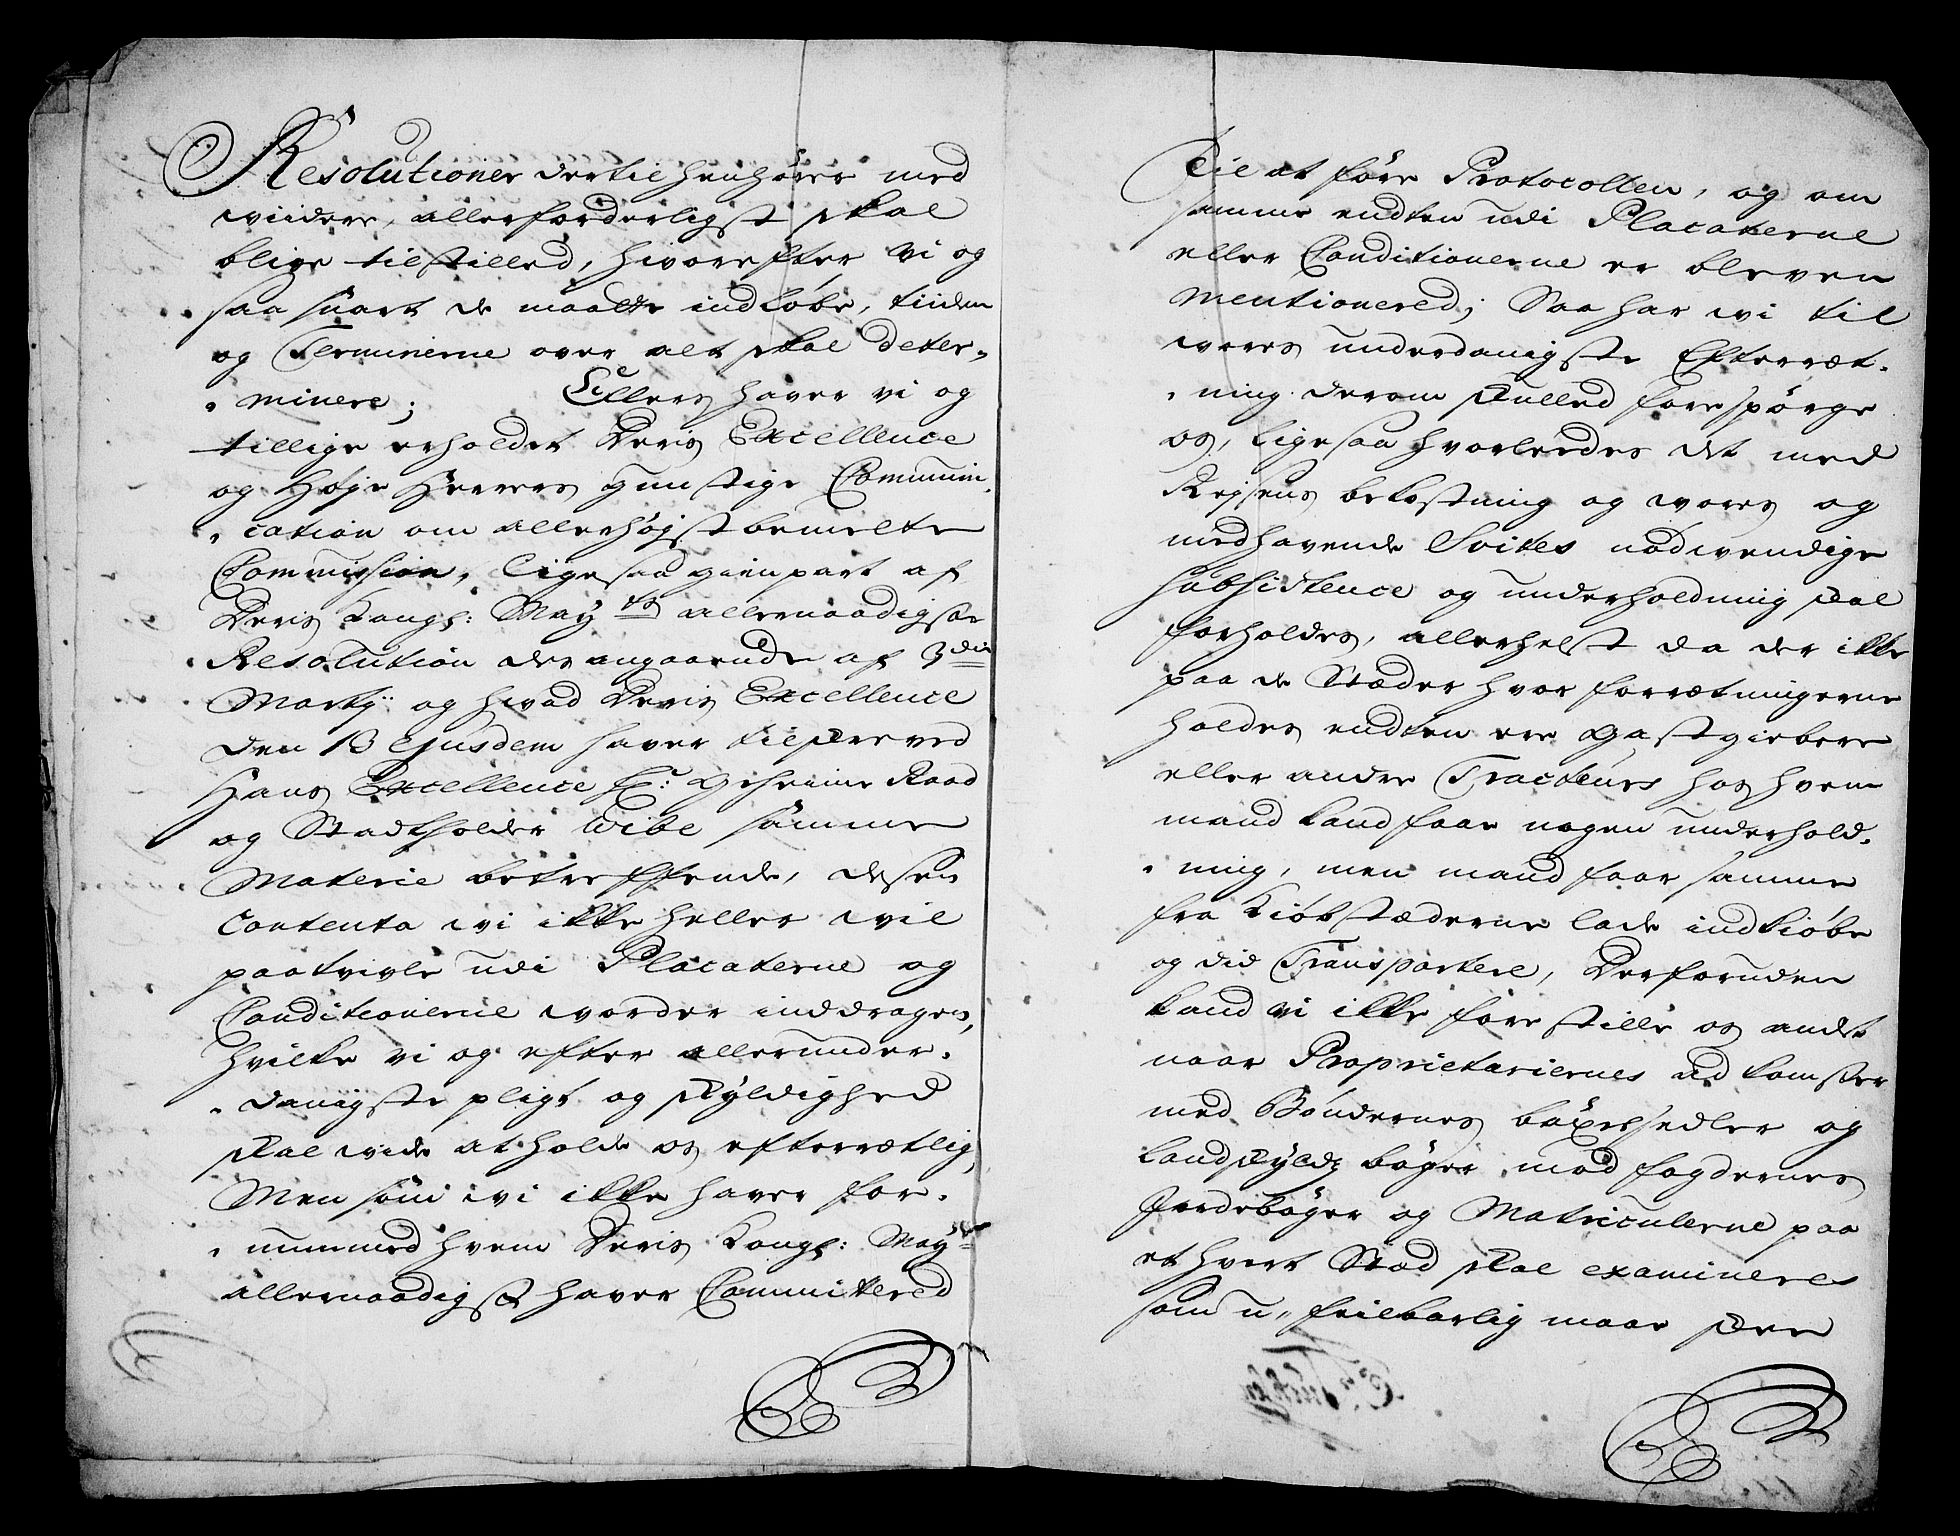 Resolutioner dertil henhörer med
widere, allerforderligst skal
blive tilstilled, hvorefter vi og
saa snart de maatte indlöbe, tiiden
og Terminerne over alt skal deter-
minere; Ellers haver vi og
tillige erholdet Deris Excellence
og Höje Herrers gunstige Communi-
cation om allerhöjstbemelte
Commission, ligesaa gienpart af
Deris Kongl: May ts allernaadigste
Resolution der angaaende af 3die
Marty og hvad Deris Excellence
den 13 Ejusdem haver tilskreved
Hans Excellence Hr: Geheime Raad
og Stadtholder Wibe samme
Materie betreffende, desen
Contenta wi ikke heller wil
paatvivle udi Placaterne og
Conditionerne worder inddragen,
hvilke vi og efter allerunder-
danigste pligt og skyldighed
skal wide at holde os efterrætlig,
Men som wi ikke haver for-
nummed hvem Deris Kongl: Mayts
allernaadigst haver Committered
Til at före Protocollen, og om
samme endten udi Placaterne
eller Conditionerne er bleven
mentionered; Saa har wi til
wores underdanigste Efterræt-
ning derom skulled forespörge
os, ligesaa hvorleedes det med
Rejsens bekostning og wores og
medhavende Svites nödwendige
Subsistence og underholdning skal
forholdes, allerhelst da der ikke
paa de Stæder hvor forrætningerne
holdes endten ere gastgiebere
eller andre Tracteurs hos hvem
mand kand faae nogen underhold-
ning, men mand faar samme
fra Kiöbstæderne lade indkiöbe
og did Transportere, Derforuden
kand vi ikke forestille os andet
naar Proprietariernes ud komster
med Böndernes böxelsedler og
Landskylds böger mod fogdernes
Jordeböger og Matriculerne paa
et hvert Stæd skal examineres
som u-feilbarlig maae skee